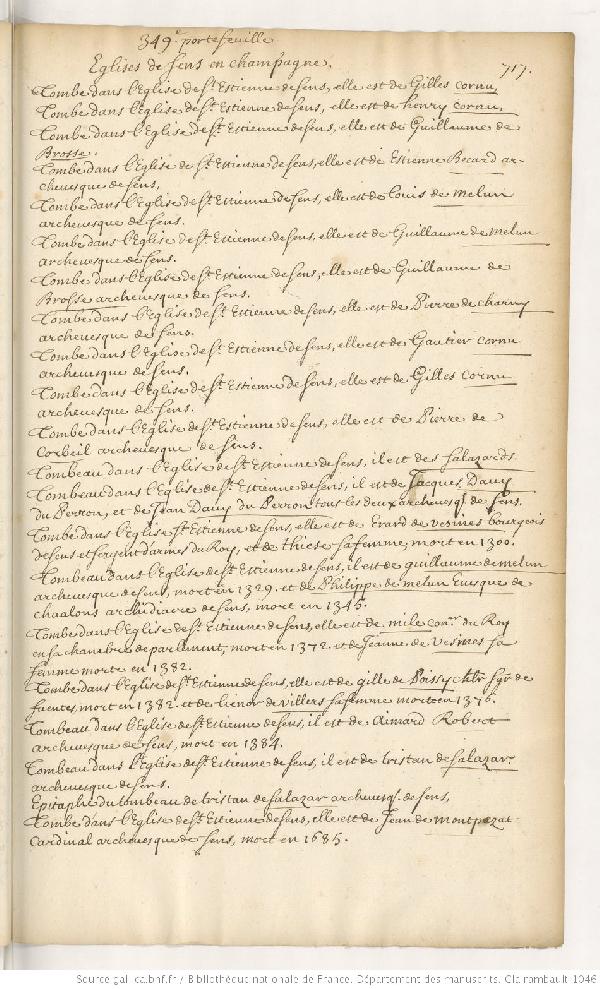 349e. portefeuille
717.
Eglises de sens en champagne.
Tombe dans l'Eglise de St. Estienne de sens, elle est de Gilles cornu
Tombe dans l'Eglise de St. Estienne de sens, elle est de henry cornu.
Tombe dans l'Eglise de St. Estienne de sens, elle est de Guillaume de
Brosse.
Tombe dans l'Eglise de St. Estienne de sens, elle est de Estienne Becard ar-
cheuesque de sens.
Tombe dans l'Eglise de St. Estienne de sens, elle est de Louis de melun
archeuesque de sens.
Tombe dans l'Eglise de St. Estienne de sens, elle est de Guillaume de melun
archeuesque de sens.
Tombe dans l'Eglise de St. Estienne de sens, elle est de Guillaume de
Brosse archeuesque de sens.
Tombe dans l'Eglise de St. Estienne de sens, elle est de Pierre de charny
archeuesque de sens.
Tombe dans l'Eglise de St. Estienne de sens, elle est de Gautier cornu
archeuesque de sens.
Tombe dans l'Eglise de St. Estienne de sens, elle est de Gilles cornu
archeuesque de sens.
Tombe dans l'Eglise de St. Estienne de sens, elle est de Pierre de
corbeil archeuesque de sens.
Tombeau dans l'Eglise de St. Estienne de sens, il est des salazards.
Tombeau dans l'Eglise de St. Estienne de sens, il est de Jacques Dauy
du Perron, et de Jean Dauy du Perron tous les deux archeuesqs. de sens.
Tombe dans l'Eglise St. Estienne de sens, elle est de Erard de vesines bourgeois
de sens et sergent d'armes du Roy, et de thiese sa femme, mort en 1300.
Tombeau dans l'Eglise de St. Estienne de sens, il est de guillaume de melun
archeuesque de sens, mort en 1329. et de Philippe de melun Euesque de
chaalons archidiacre de sens, mort en 1345.
Tombe dans l'Eglise de St. Estienne de sens, elle est de mile coner. du Roy
en sa chambre de parlement, mort en 1372. et de Jeanne de vesines sa
femme morte en 1382.
Tombe dans l'Eglise de St. Estienne de sens, elle est de gille de Poissy chlr. sgr. de
fuentes, mort en 1382. et de lienor de villers sa femme morte en 1376.
Tombeau dans l'Eglise de St. Estienne de sens, il est de aimard Robert
archeuesque de sens, mort en 1384.
Tombeau dans l'Eglise de St. Estienne de sens, il est de tristan de salazar
archeuesque de sens.
Epitaphe du tombeau de tristan de salazar archeuesq. de sens,
Tombe dans l'Eglise de St. Estienne de sens, elle est de Jean de montpezat
cardinal archeuesque de sens, mort en 1685.
Source gallica.bnf.fr / Bibliothèque nationale de France. Département des manuscrits. Clairambault 1046